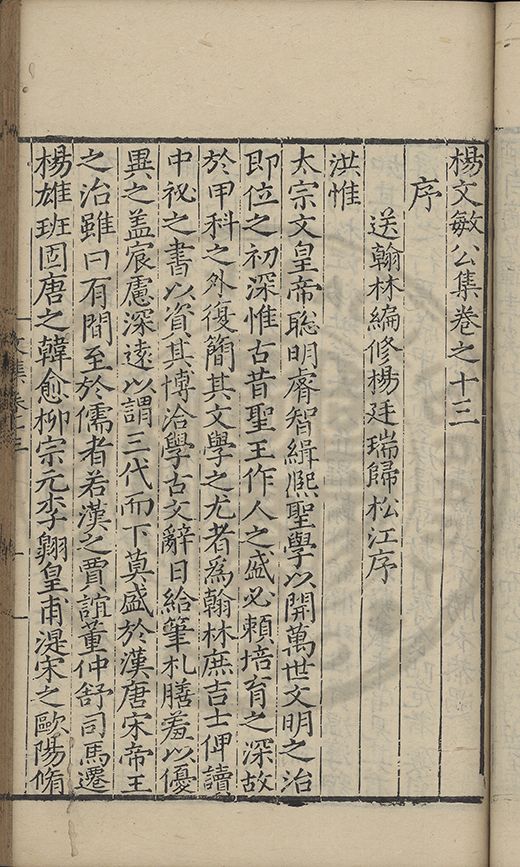 楊文敏公集卷之十三
序
送翰林編修楊廷瑞歸松江序
洪惟
太宗文皇帝聰明睿智緝熈聖學以開萬世文明之治
即位之初深惟古昔聖王作人之盛必頼培育之深故
於甲科之外復簡其文學之尤者為翰林庶吉士俾讀
中祕之書以資其博洽學古文辭日給筆札膳羞以優
異之盖宸慮深遠以謂三代而下莫盛於漢唐宋帝王
之治雖曰有間至於儒者若漢之賈誼董仲舒司馬遷
楊雄班固唐之韓愈柳宗元李翺皇甫湜宋之歐陽脩
文集卷十三